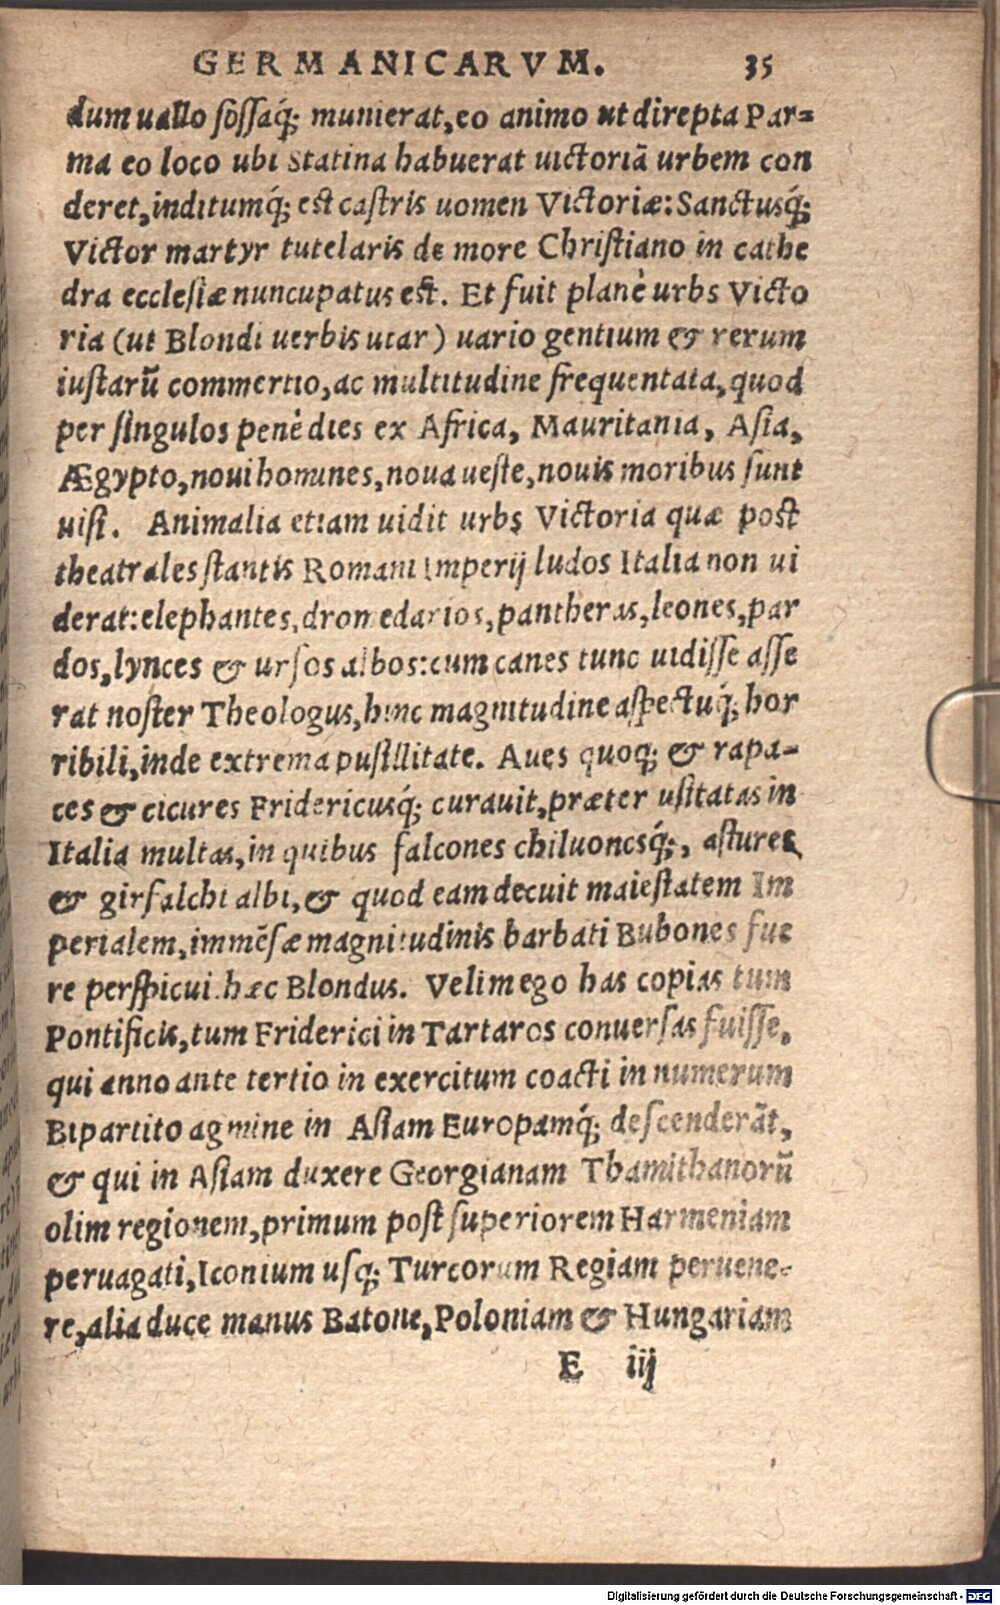 GERMANICARVM. 35
dum uallo fossaq́; munierat, eo animo ut direpta Par=
ma eo loco ubi Statina habuerat uictoriã urbem con
deret, inditumq́; est castris uomen Victoriæ: Sanctusq́;
Victor martyr tutelaris de more Christiano in cathe
dra ecclesiæ nuncupatus est. Et fuit planè urbs Victo
ria (ut Blondi uerbis utar) uario gentium & rerum
iustarũ commertio, ac multitudine frequentata, quod
per singulos penè dies ex Africa, Mauritania, Asia,
Ægypto, noui homines, noua ueste, nouis moribus sunt
uisi. Animalia etiam uidit urbs Victoria quæ post
theatrales stantis Romani Imperij ludos Italia non ui
derat: elephantes, dromedarios, pantheras, leones, par
dos, lynces & ursos albos: cum canes tunc uidisse asse
rat noster Theologus, hinc magnitudine aspectuq́; hor
ribili, inde extrema pusillitate. Aues quoq; & rapa-
ces & cicures Fridericusq́; curauit, præter usitatas in
Italia multas, in quibus falcones chiluonesq́;, astures
& girfalchi albi, & quod eam decuit maiestatem Im
perialem, immẽsæ magnitudinis barbati Bubones fue
re perspicui. hæc Blondus. Velim ego has copias tum
Pontificis, tum Friderici in Tartaros conuersas fuisse,
qui anno ante tertio in exercitum coacti in numerum
Bipartito agmine in Asiam Europamq́; descenderãt,
& qui in Asiam duxere Georgianam Thamithanorũ
olim regionem, primum post superiorem Harmeniam
peruagati, Iconium usq; Turcorum Regiam peruene-
re, alia duce manus Batone, Poloniam & Hungariam
E iij
Digitalisierung gefördert durch die Deutsche Forschungsgemeinschaft - DFG